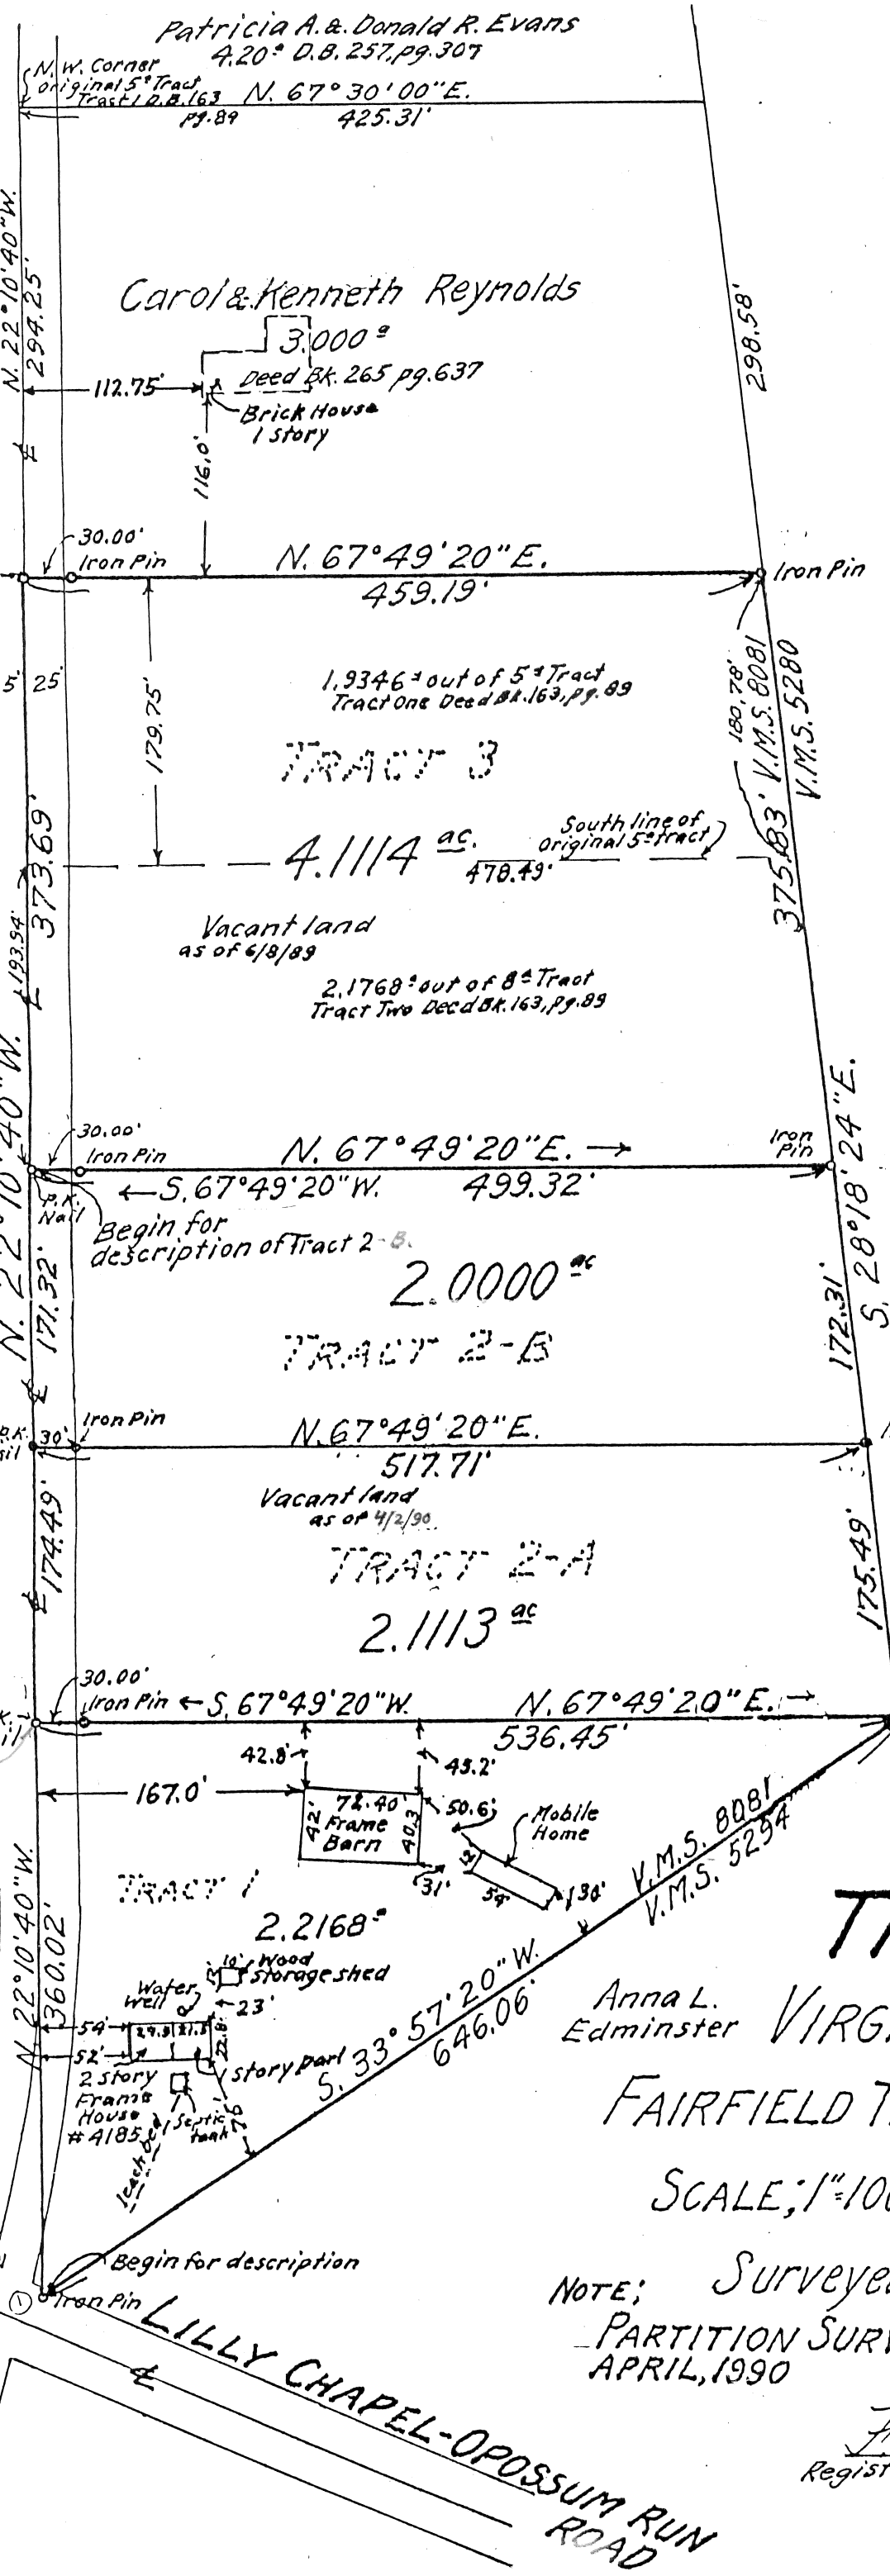 Patricia A. & Donald R. Evans
4.20ᵃ D.B. 257, pg. 307
N. W. Corner
Original 5ᵃ Tract
Tract 1 D.B. 163
pg. 89
N. 67°30'00"E.
425.31'
N. 22°10'40"W.
294.25'
298.58'
Carol & Kenneth Reynolds
3.000ᵃ
Deed Bk. 265 pg. 637
112.75'
Brick House
1 Story
116.0'
30.00'
Iron Pin
N. 67°49'20"E.
459.19'
Iron Pin
5'
25'
1.9346ᵃ out of 5ᵃ Tract
Tract One Deed Bk. 163, pg. 89
179.75'
180.78'
V.M.S. 8081
V.M.S. 5280
TRACT 3
4.1114 ac.
South line of
Original 5ᵃ tract
478.49'
375.83'
373.69'
193.94'
Vacant land
as of 6/8/89
2.1768ᵃ out of 8ᵃ Tract
Tract Two Deed Bk. 163, pg. 89
N. 22°10'40"W.
30.00'
Iron Pin
N. 67°49'20"E. →
Iron
Pin
← S. 67°49'20"W.
499.32'
P.K.
Nail
Begin for
description of Tract 2-B.
S. 28°18'24"E.
2.0000 ac
171.32'
172.31'
TRACT 2-B
P.K.
30'
Iron Pin
N. 67°49'20"E.
517.71'
Vacant land
as of 4/2/90
174.49'
175.49'
TRACT 2-A
2.1113 ac
30.00'
Iron Pin
← S. 67°49'20"W.
N. 67°49'20"E. →
536.45'
42.8'
43.2'
167.0'
72.40'
42'
Frame
Barn
40.3
50.6'
Mobile
Home
12'
54'
31'
30'
V.M.S. 8081
V.M.S. 5294
TRACT 1
2.2168ᵃ
N 22°10'40"W.
360.02'
10'
Wood
Storage shed
Water
Well
23'
54'
52'
29.3'
21.5'
22.8'
1 story part
2 story
Frame
House
#4185
1 Septic
tank
76'
leach bed
S. 33°57'20"W.
646.06'
Anna L.
Edminster
VIRG
FAIRFIELD T
SCALE; 1"=10
Begin for description
Iron Pin
1
NOTE;
Surveye
PARTITION SURV
APRIL, 1990
Regist
LILLY CHAPEL-OPOSSUM RUN
ROAD